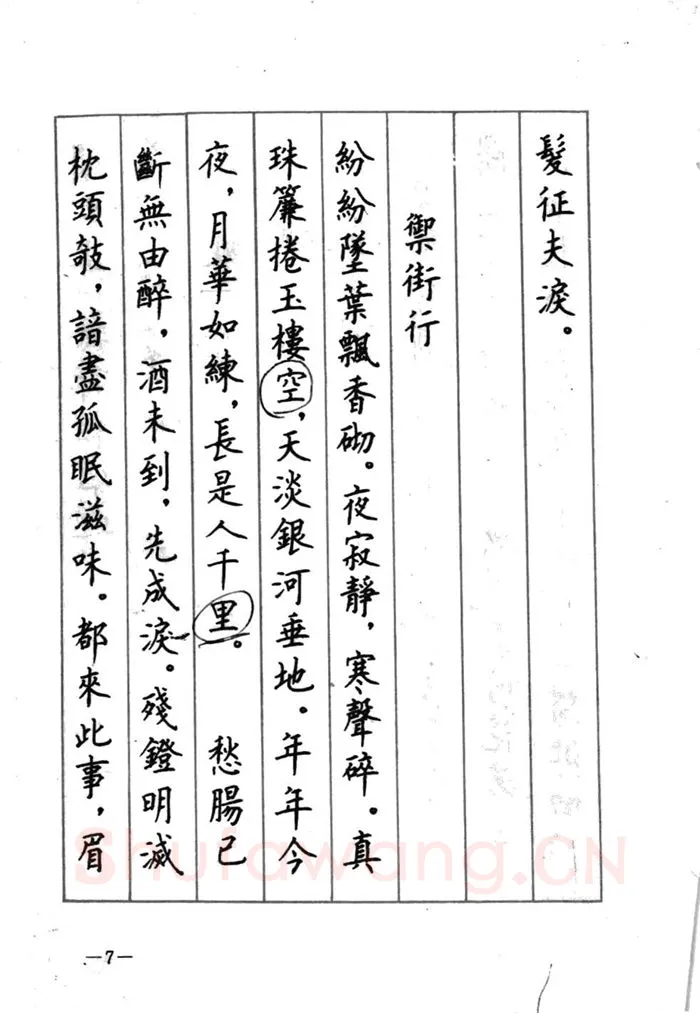 髮征夫淚。
禦街行
紛紛墜葉飄香砌。夜寂靜，寒聲碎。真
珠簾捲玉樓空，天淡銀河垂地。年年今
夜，月華如練，長是人千里。 愁腸已
斷無由醉，酒未到，先成淚。殘鐙明滅
枕頭攲，諳盡孤眠滋味。都來此事，眉
—7—
Shufawang.CN